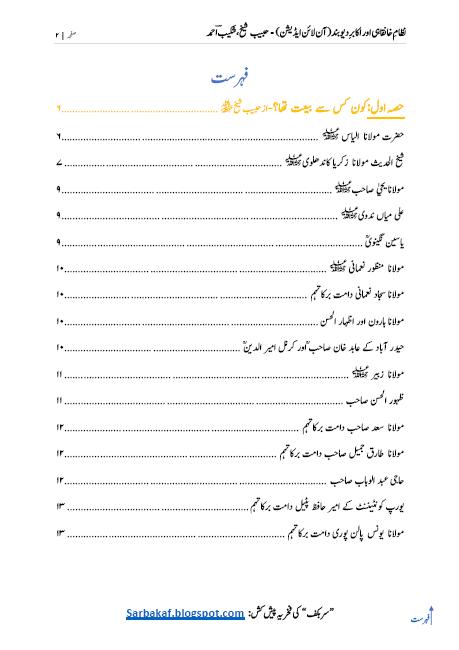 نظامِ خانقاہی اور اکابرِ دیوبند (آن لائن ایڈیشن) - حبیب شیخ، شکیب احمد صفحہ | ۲
فہرست
حصہ اول: کون کس سے بیعت تھا؟- از حبیب شیخ ﷾ ۶
حضرت مولانا الیاس ؒ ۶
شیخ الحدیث مولانا زکریا کاندھلوی ؒ ۷
مولانا یحییٰ صاحب ؒ ۹
علی میاں ندوی ؒ ۹
یاسین نگینوی ؒ ۹
مولانا منظور نعمانی ؒ ۱۰
مولانا سجاد نعمانی دامت برکاتہم ۱۰
مولانا ہارون اور اظہار الحسن ۱۰
حیدر آباد کے عابد خان صاحب ؒ اور کرنل امیر الدین ؒ ۱۰
مولانا زبیر ؒ ۱۱
ظہور الحسن صاحب ۱۱
مولانا سعد صاحب دامت برکاتہم ۱۲
مولانا طارق جمیل صاحب دامت برکاتہم ۱۲
حاجی عبد الوہاب صاحب ۱۲
یورپ کونٹیننٹ کے امیر حافظ پٹیل دامت برکاتہم ۱۳
مولانا یونس پالن پوری دامت برکاتہم ۱۳
”سربکف“ کی فخریہ پیش کش: Sarbakaf.blogspot.com
فہرست